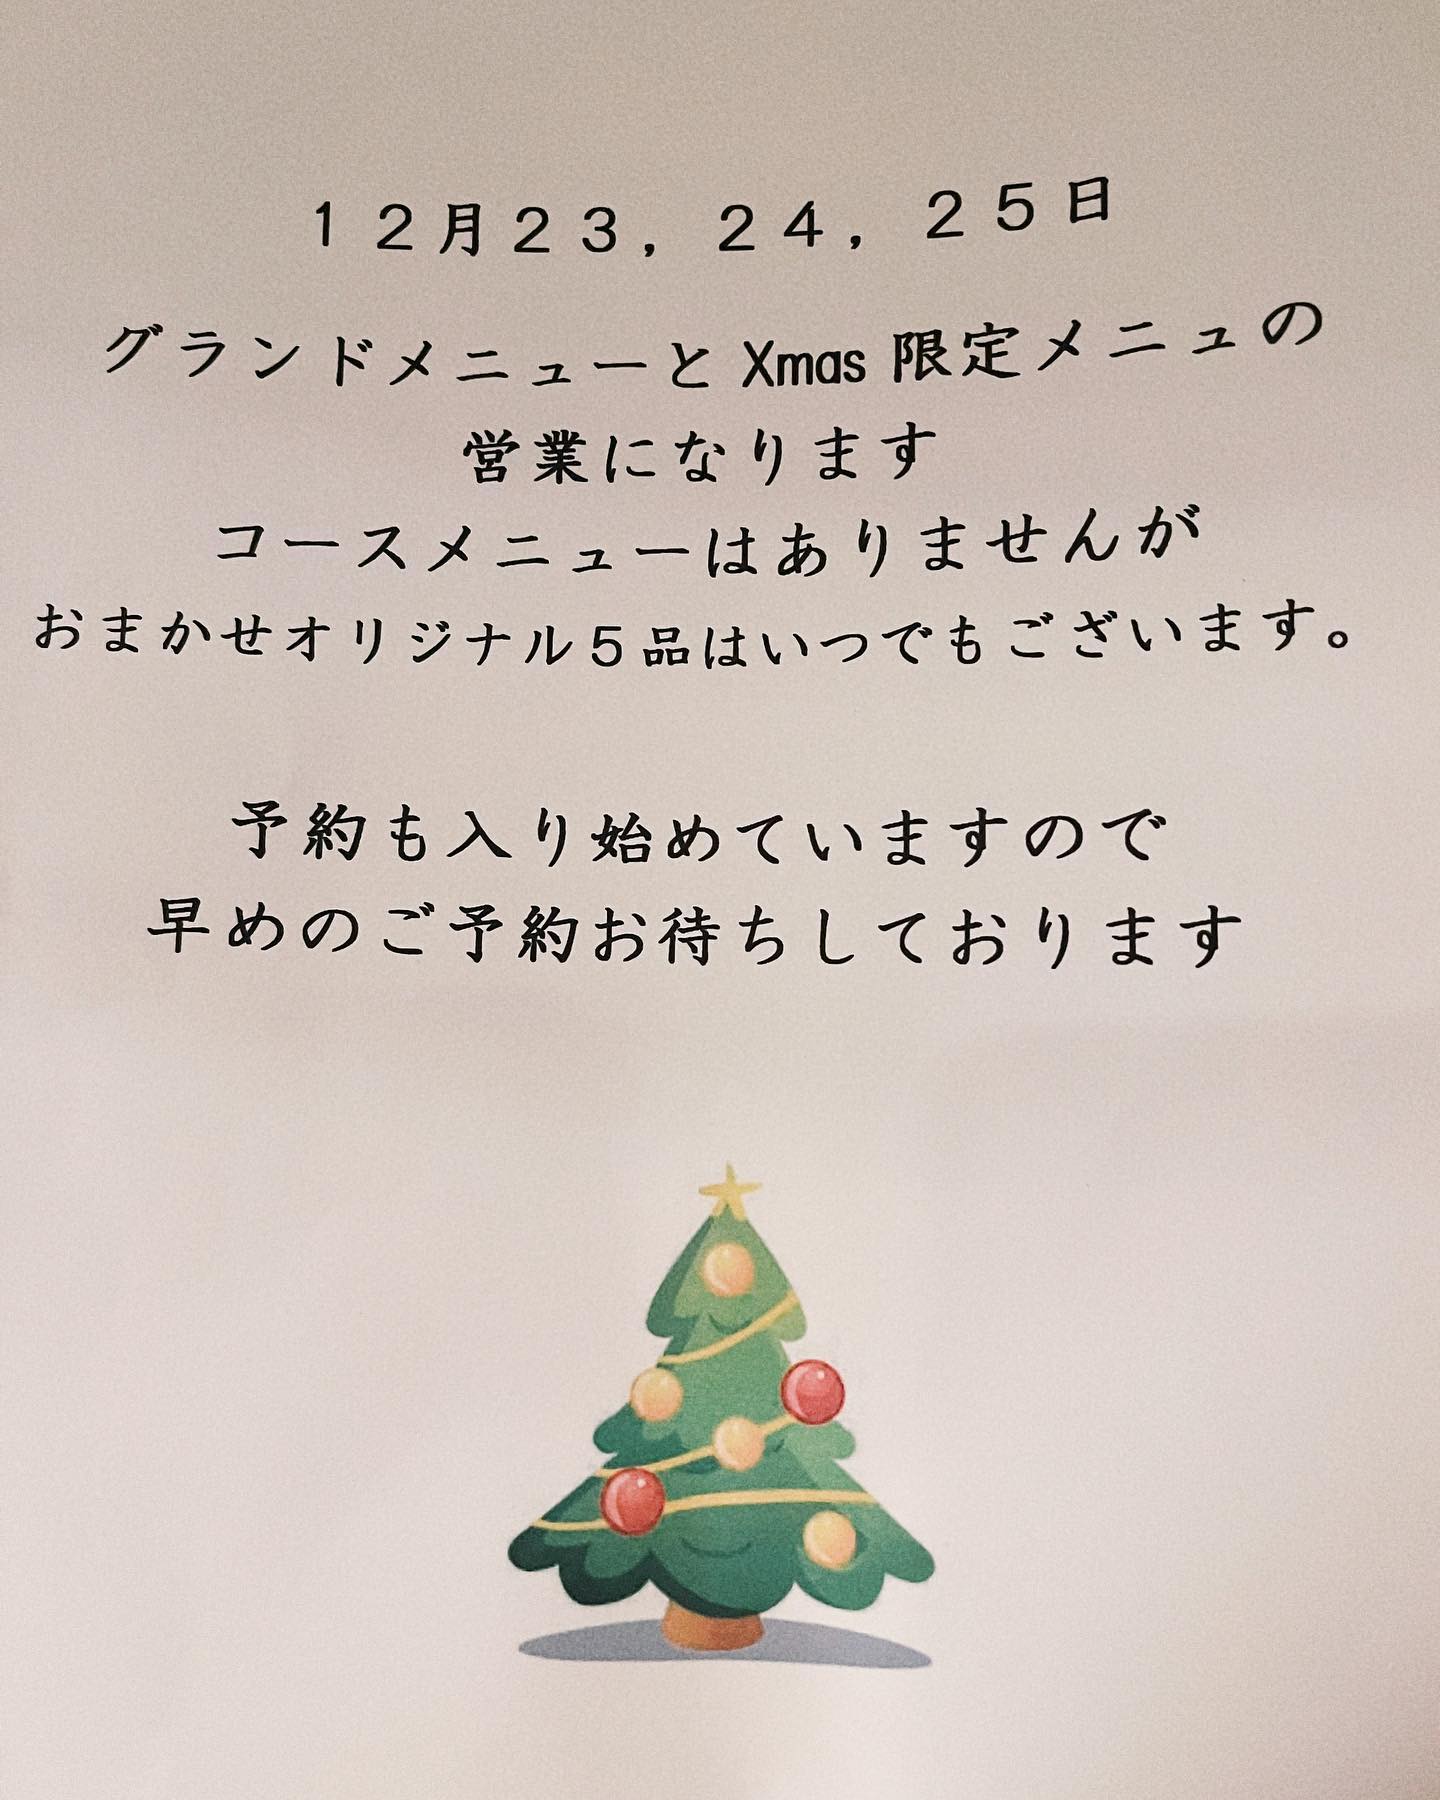 １２月２３，２４，２５日
グランドメニューと Xmas 限定メニュの
営業になります
コースメニューはありませんが
おまかせオリジナル５品はいつでもございます。
予約も入り始めていますので
早めのご予約お待ちしております